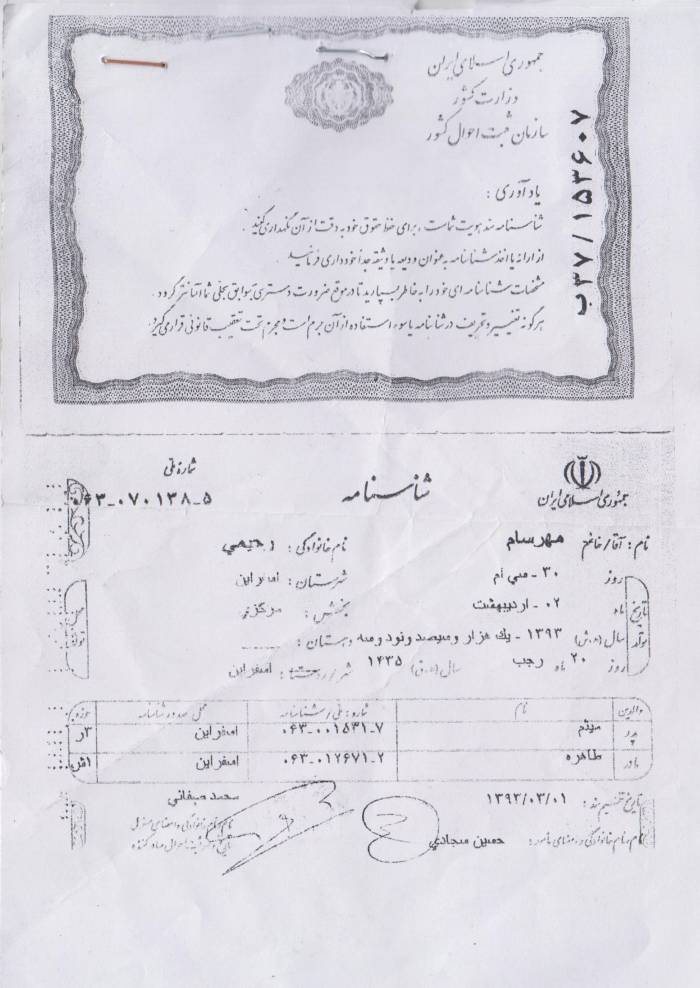 جمهوری اسلامی ایران
وزارت کشور
سازمان ثبت احوال کشور
ب۳۷/۱۵۳۶۰۷
یادآوری :
شناسنامه سند هویت شماست ، برای حفظ حقوق خود به دقت از آن نگهداری کنید .
از ارائه یا اخذ شناسنامه به عنوان ودیعه یا وثیقه جداً خودداری فرمائید .
مشخصات شناسنامه ای خود را به خاطر بسپارید تا در موقع ضرورت دسترسی به سوابق سجلی شما آسانتر گردد .
هرگونه تغییر و تحریف در شناسنامه یا سوء استفاده از آن جرم است و مجرم تحت تعقیب قانونی قرار می گیرد .
جمهوری اسلامی ایران
شناسنامه
شماره ملی
۰۶۳-۰۷۰۱۳۸-۵
نام : آقا/خانم مهرسام نام خانوادگی : رحیمی
تاریخ تولد
روز ۳۰ - سی ام شهرستان : اسفراین
ماه ۰۲ - اردیبهشت بخش : مرکزی
سال (ه.ش) ۱۳۹۳ - یك هزار و سیصد و نود و سه دهستان :
روز ۲۰ ماه رجب سال (ه.ق) ۱۴۳۵ شهر/روستا : اسفراین
محل تولد
والدین نام شماره : ملی/شناسنامه محل صدور شناسنامه حوزه
پدر میثم ۰۶۳-۰۰۱۵۳۱-۷ اسفراین ۳ر
مادر طاهره ۰۶۳-۰۱۲۶۷۱-۲ اسفراین
تاریخ تنظیم سند : ۱۳۹۳/۰۳/۰۱
نام و نام خانوادگی و امضای مأمور : حسین سجادي
نام و نام خانوادگی و امضای مسئول